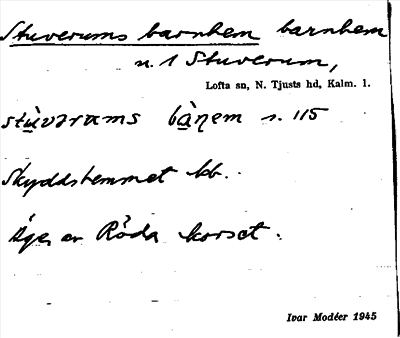 Stuverums barnhem barnhem
n. 1 Stuverum,
Lofta sn, N. Tjusts hd, Kalm. l.
stùvərams bàṇem s. 115
Skyddshemmet bb.
Äges av Röda korset.
Ivar Modéer 1945